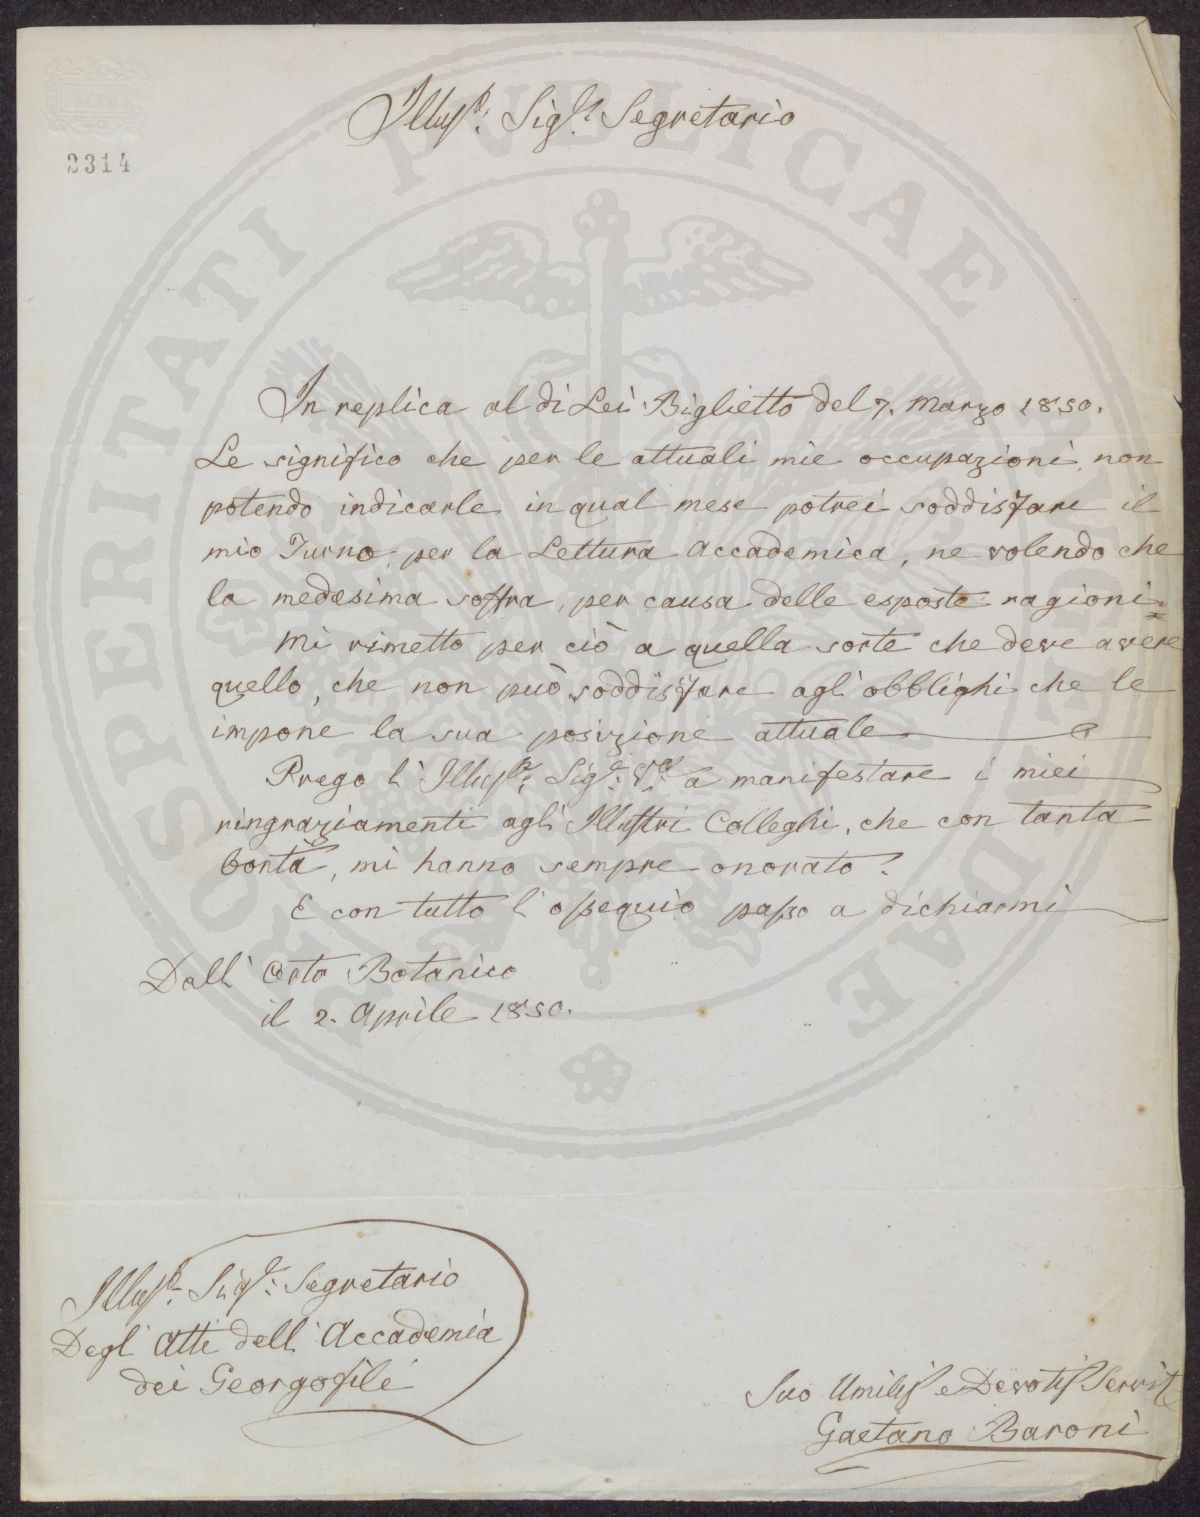 2314
Illus.º Sig.r Segretario
PROSPERITATI PUBLICAE AUGENDAE
In replica al di Lei Biglietto del 7. Marzo 1850.
Le significo che per le attuali mie occupazioni, non
potendo indicarle in qual mese potrei soddisfare il
mio Turno, per la Lettura Accademica, ne volendo che
la medesima soffra, per causa delle esposte ragioni =
Mi rimetto per ciò a quella sorte che deve avere
quello, che non può soddisfare agli obblighi che le
impone la sua posizione attuale
Prego l'Illus.º Sig.r a manifestare i miei
ringraziamenti agli Illustri Colleghi, che con tanta
bontà, mi hanno sempre onorato.
E con tutto l'ossequio passo a dichiarmi
Dall' Orto Botanico
il 2. Aprile 1850.
Illus.º Sig.r Segretario
Degl' Atti dell' Accademia
dei Georgofili
Suo Umilis e Devotis Servit
Gaetano Baroni